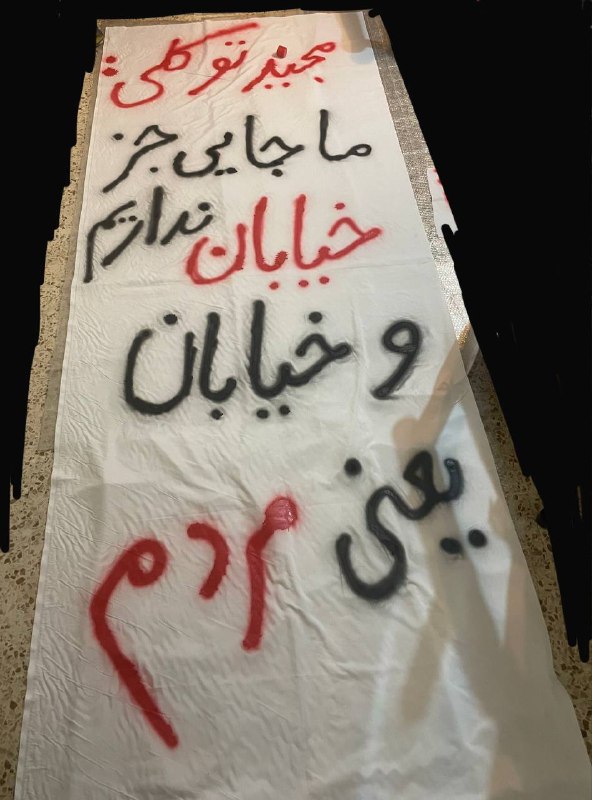 مجید توکلی:
ما جایی جز
خیابان نداریم
و خیابان
یعنی
مردم